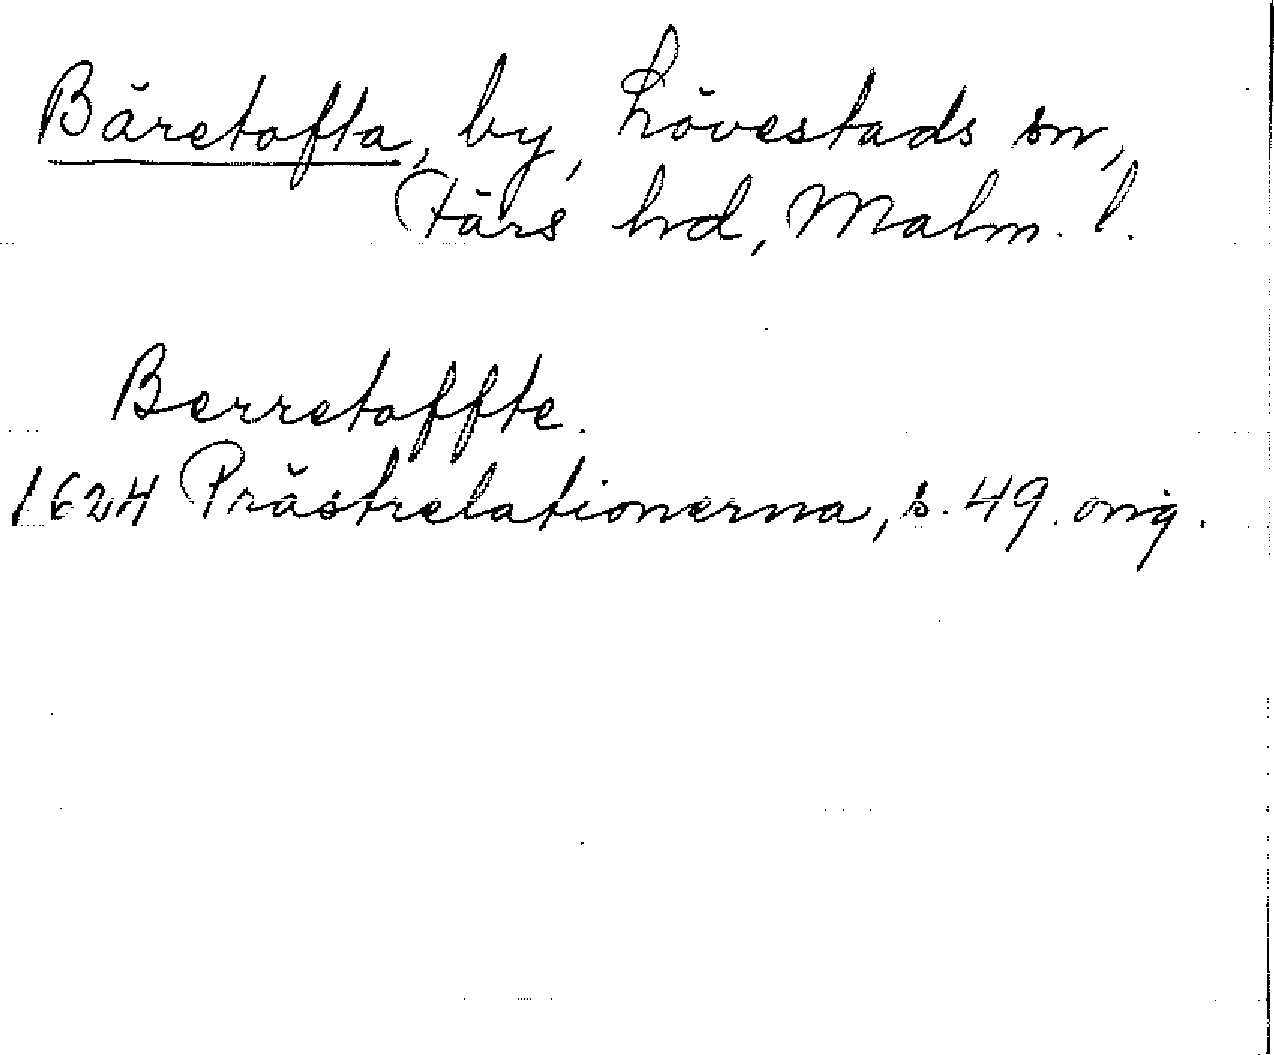 Bäretofta, by, Lövestads sn,
Färs hd, Malm. l.
Berretoffte.
1624 Prästrelationerna, s. 49. orig.